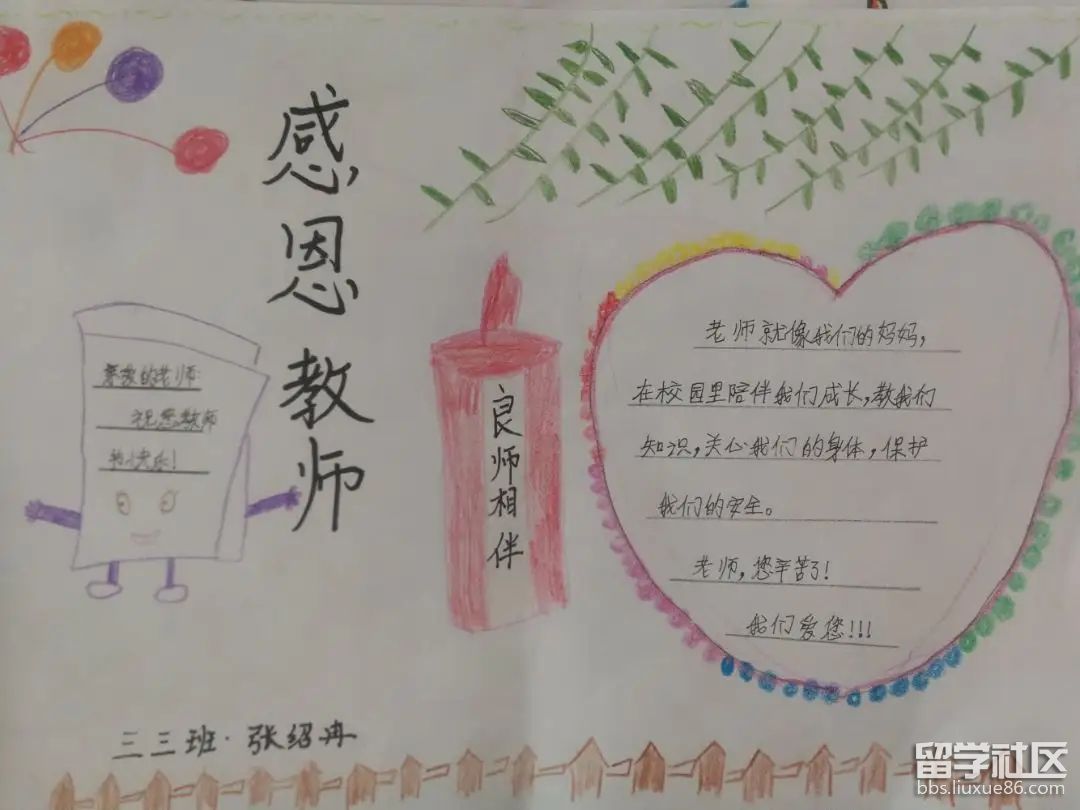 感恩教师
亲爱的老师:
祝您教师
节快乐!
良师相伴
老师就像我们的妈妈,
在校园里陪伴我们成长,教我们
知识,关心我们的身体,保护
我们的安全。
老师,您辛苦了!
我们爱您!!!
三三班·张绍冉
留学社区
bbs.liuxue86.com